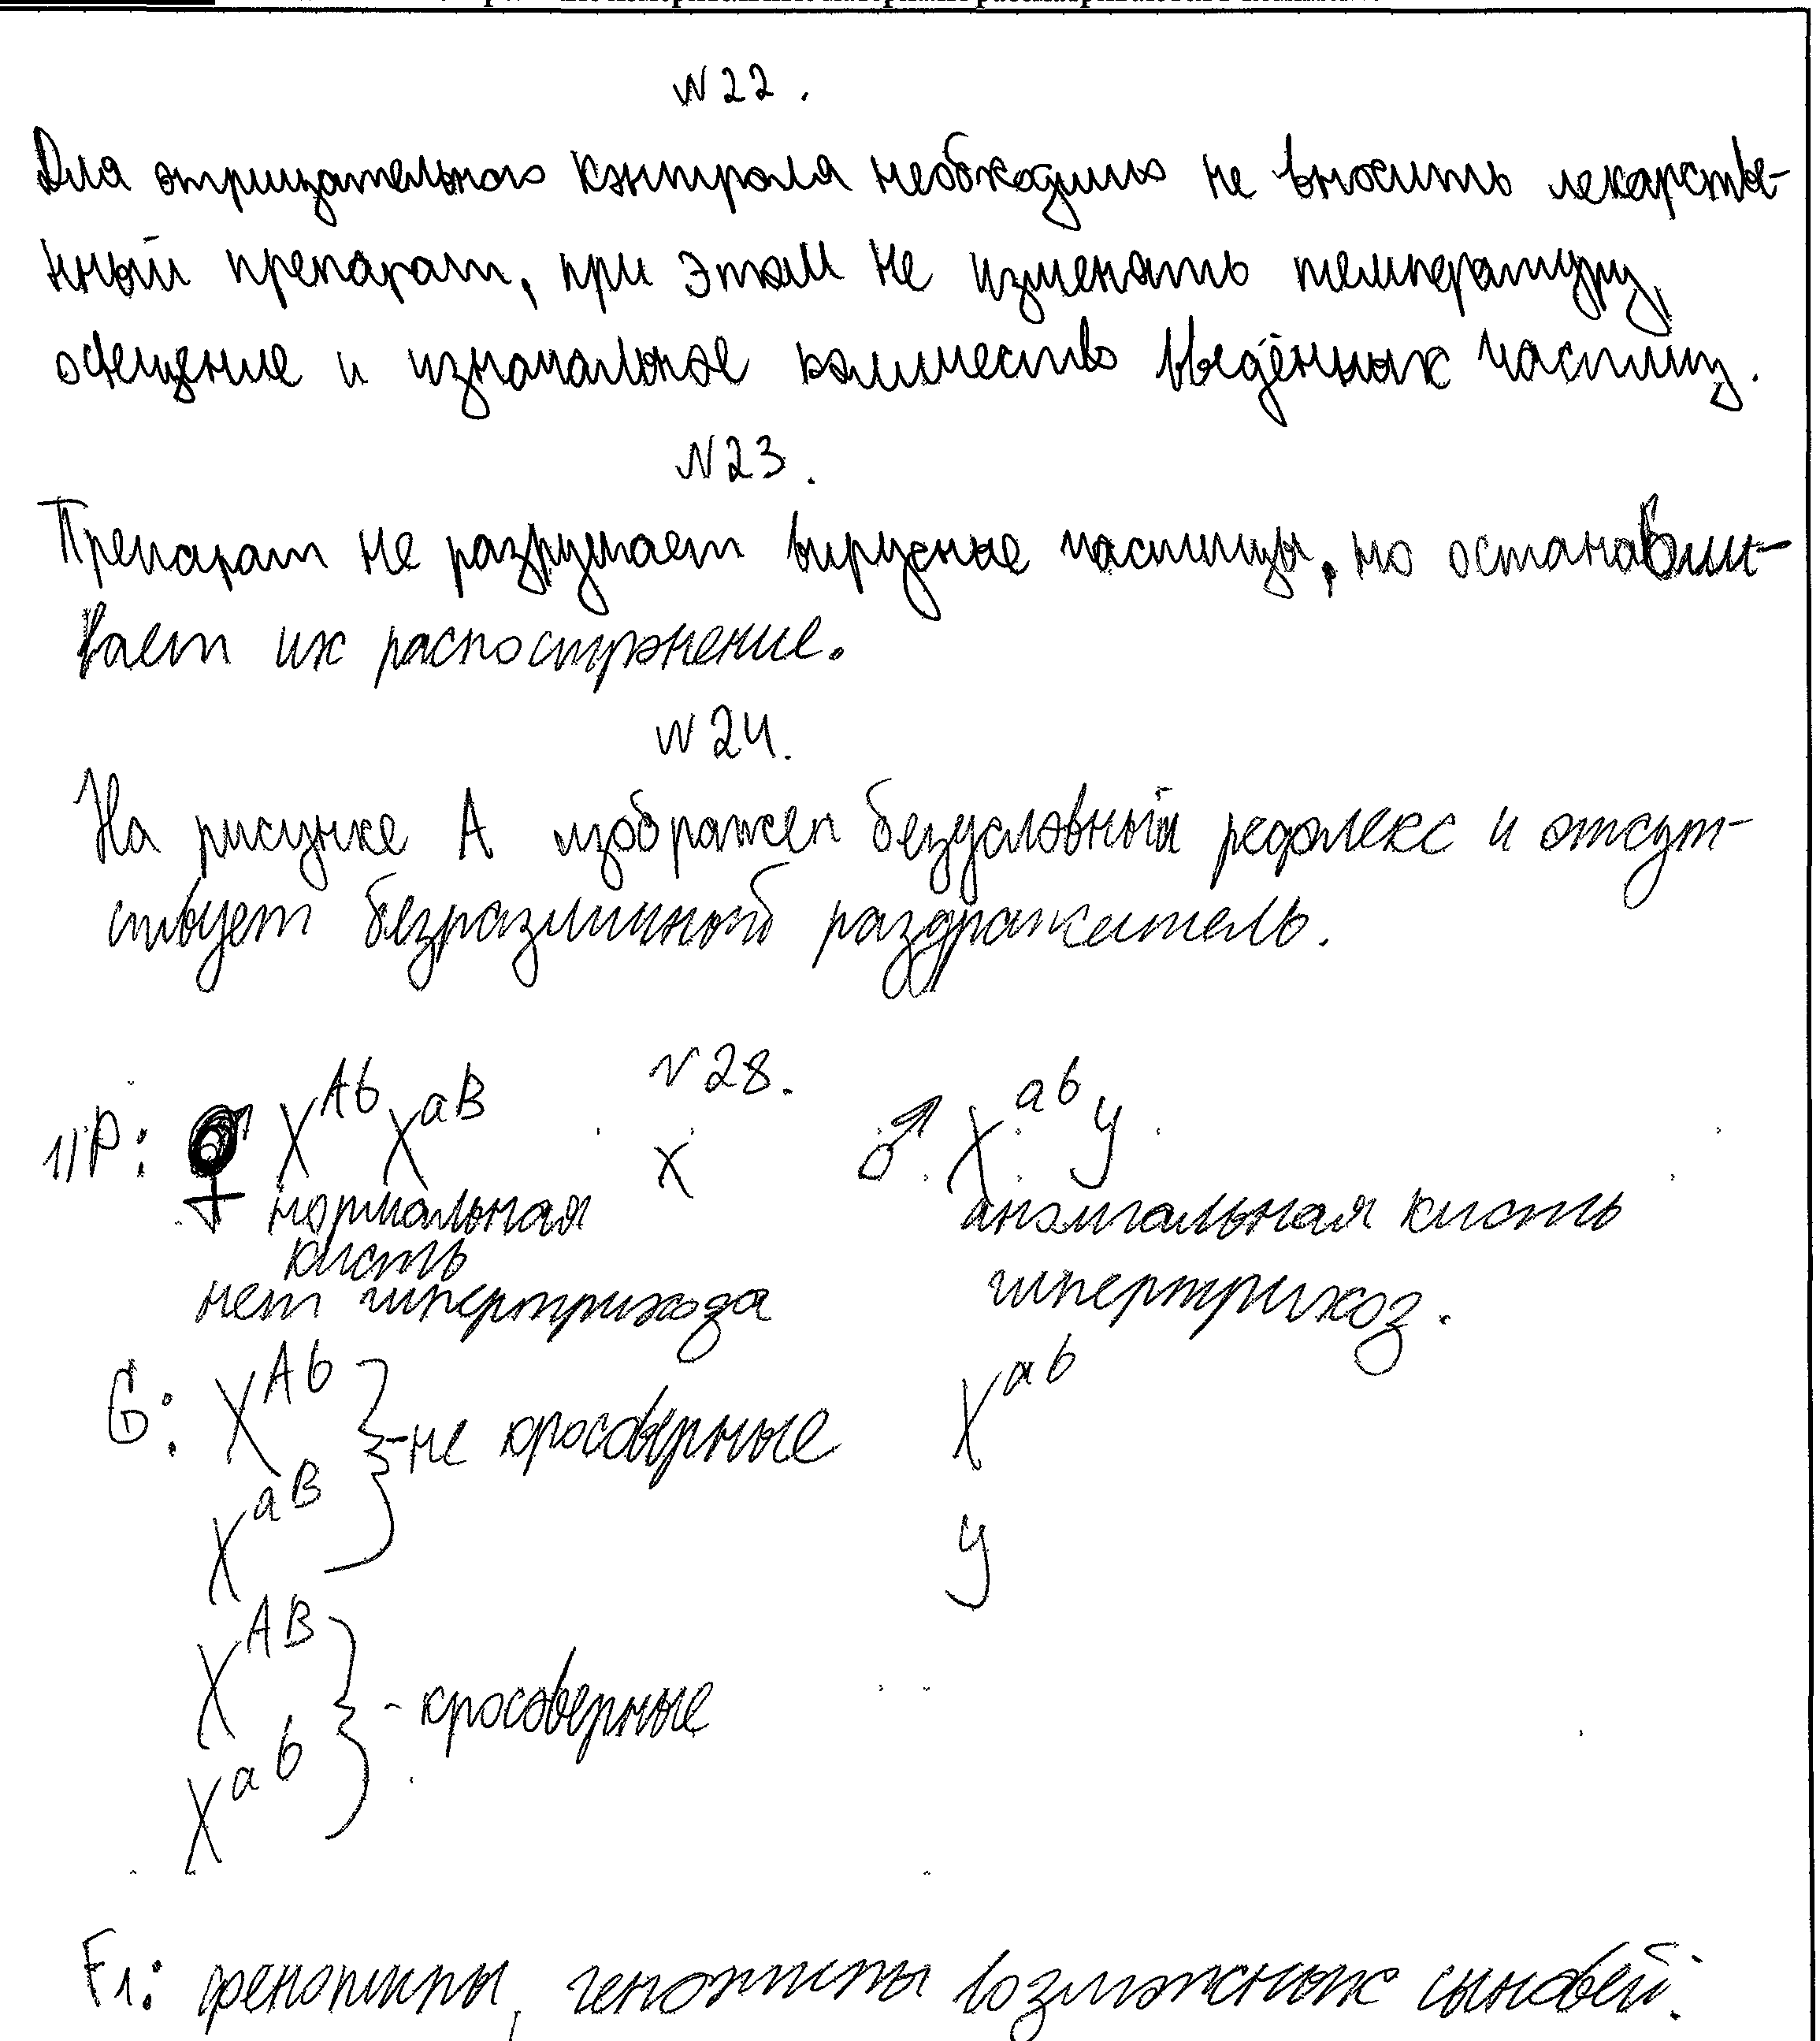 №22.
Для отрицательного контроля необходимо не вносить лекарстве-
нный препарат, при этом не изменять температуру,
освещение и изначальное количество введённых частиц.
№23.
Препарат не разрушает вирусные частицы, но останавли-
вает их распостронение.
№24.
На рисунке А изображен безусловный рефлекс и отсут-
ствует безразличный раздражитель.
№28.
1) P: ♀ X^Ab X^aB x ♂ X^ab y
нормальная аномальная кисть
кисть
нет гипертрихоза гипертрихоз.
G: X^Ab - не кросоверные X^ab
X^aB y
X^AB - кросоверные
X^ab
F1: фенотипы, генотипы возможных сыновей: